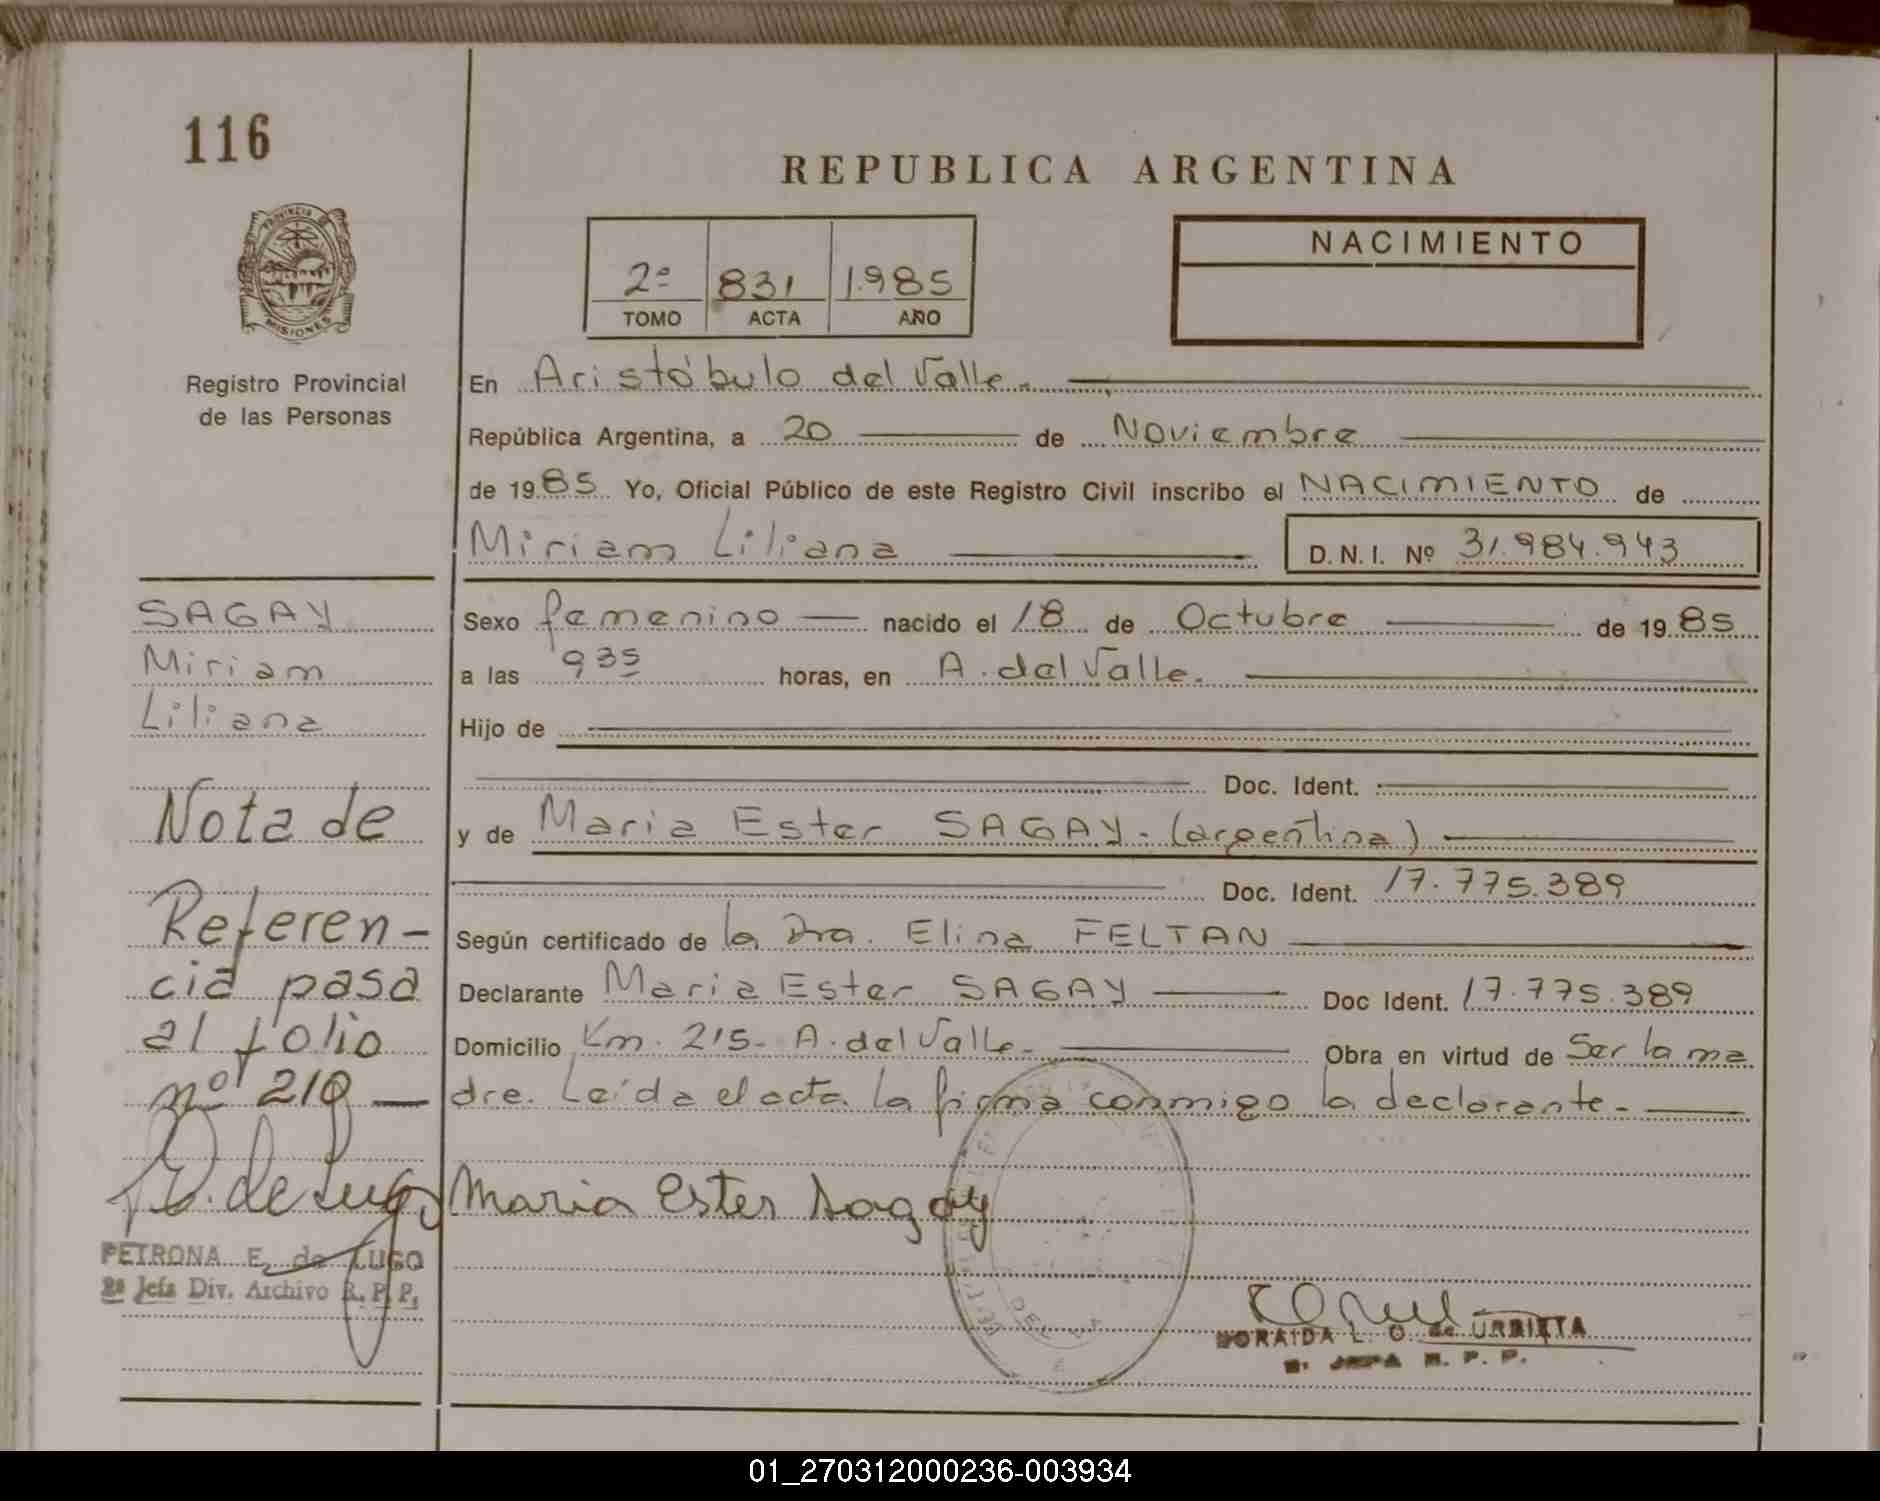 116
REPUBLICA ARGENTINA
PROVINCIA DE
MISIONES
2º 831 1.985
TOMO ACTA AÑO
NACIMIENTO
Registro Provincial
de las Personas
En Aristóbulo del Valle.
República Argentina, a 20 de Noviembre
de 1985 Yo, Oficial Público de este Registro Civil inscribo el NACIMIENTO de
Miriam Liliana D.N.I. Nº 31.984.943
SAGAY
Miriam
Liliana
Sexo femenino nacido el 18 de Octubre de 1985
a las 9 35 horas, en A. del Valle.
Hijo de
Doc. Ident.
y de Maria Ester SAGAY. (argentina)
Doc. Ident. 17.775.389
Según certificado de la Dra. Elina FELTAN
Declarante Maria Ester SAGAY Doc Ident. 17.775.389
Domicilio Km. 215- A. del Valle. Obra en virtud de Ser la ma
dre. Leída el acta la firma conmigo la declarante.
Nota de
Referen-
cia pasa
al folio
nº 210
P. de Lugo
PETRONA E. de LUGO
2ª Jefa Div. Archivo R. P. P.
Maria Ester Sagay
DEL VA
NORAIDA L. O. de URBIETA
JEFA R. P. P.
01_270312000236-003934